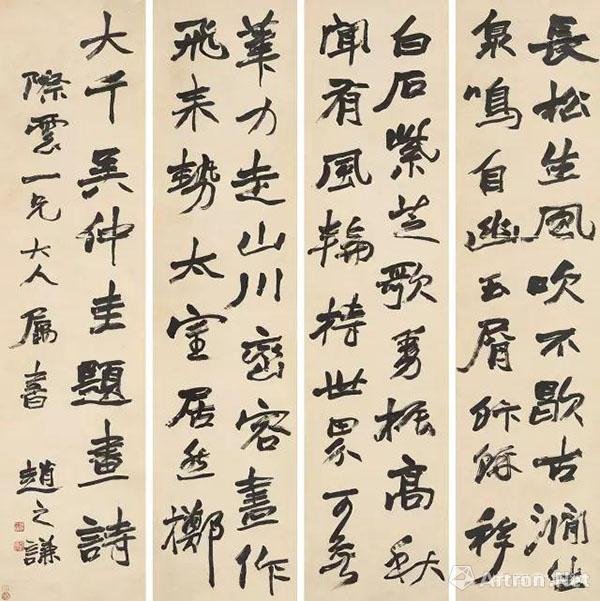 長松生風吹不歇古澗仙
泉鳴自幽玉屑
白石紫芝歌振高秋
聞有風輪持世界可無
筆力走山川巒容盡作
飛来勢太室居然擲
大千吳仲圭題畫詩
際雲一兄大人屬書 趙之謙
Artron.Net